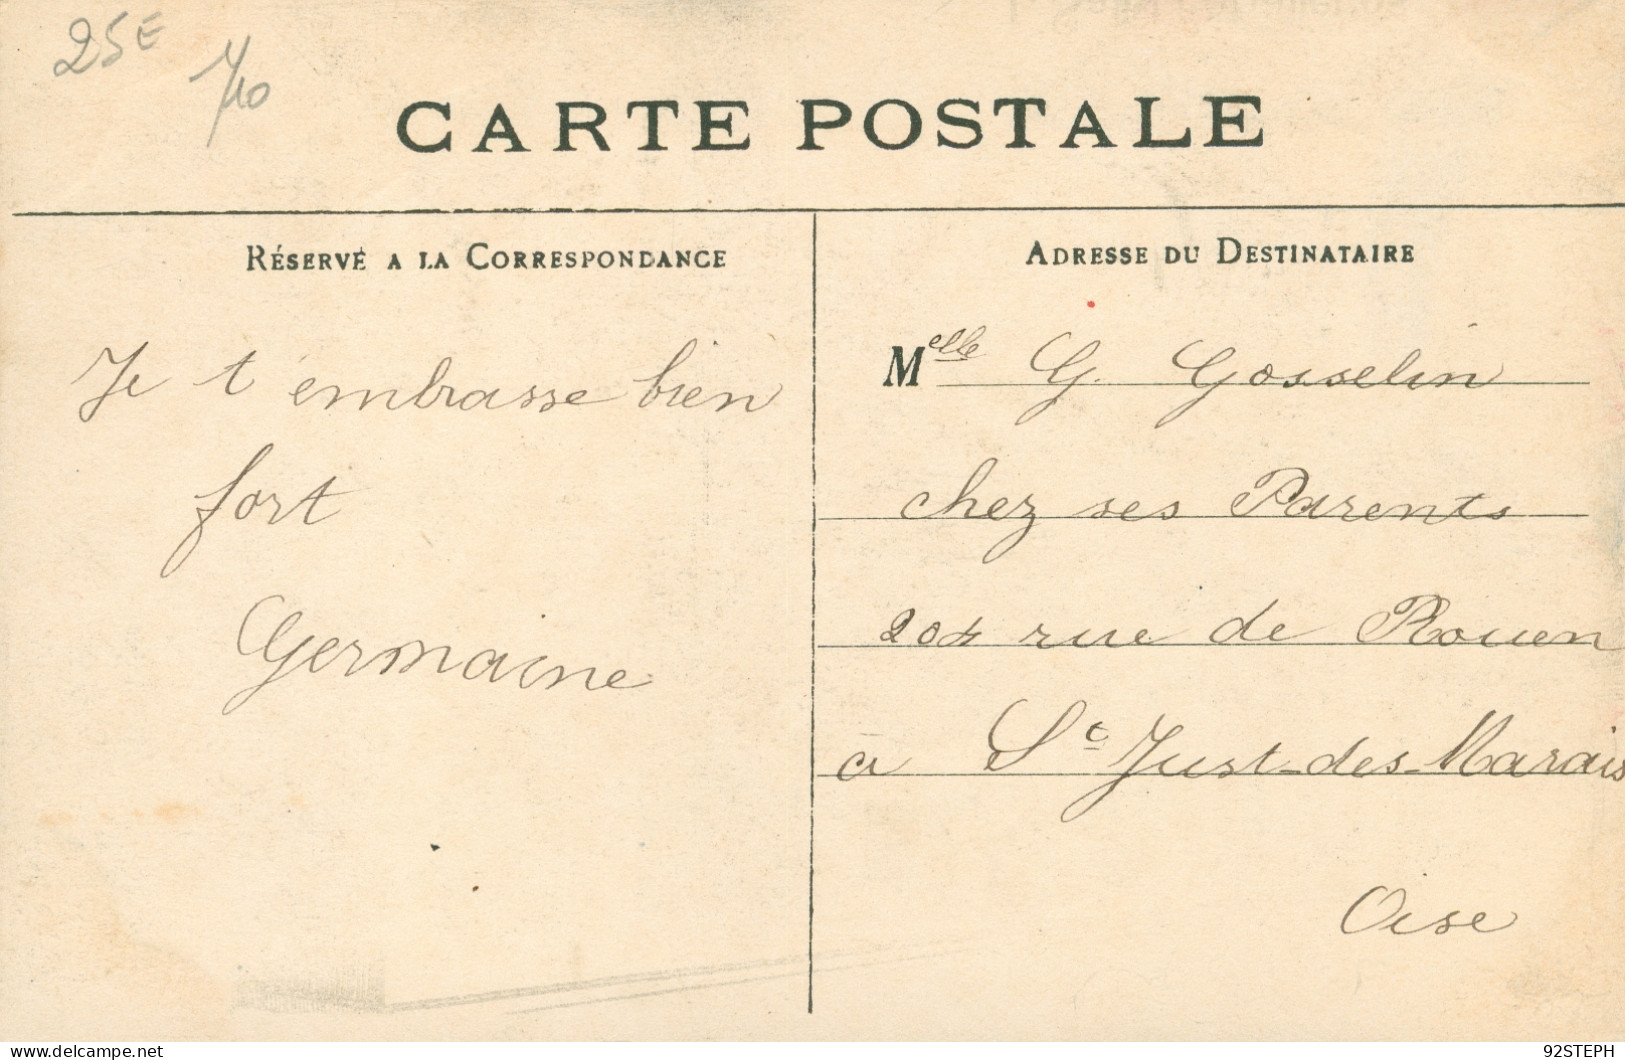 25E
1/10
CARTE POSTALE
RÉSERVÉ A LA CORRESPONDANCE
Je t'embrasse bien
fort
Germaine
ADRESSE DU DESTINATAIRE
Melle G. Gosselin
chez ses Parents
204 rue de Rouen
a St Just-des-Marais
Oise
www.delcampe.net
92STEPH